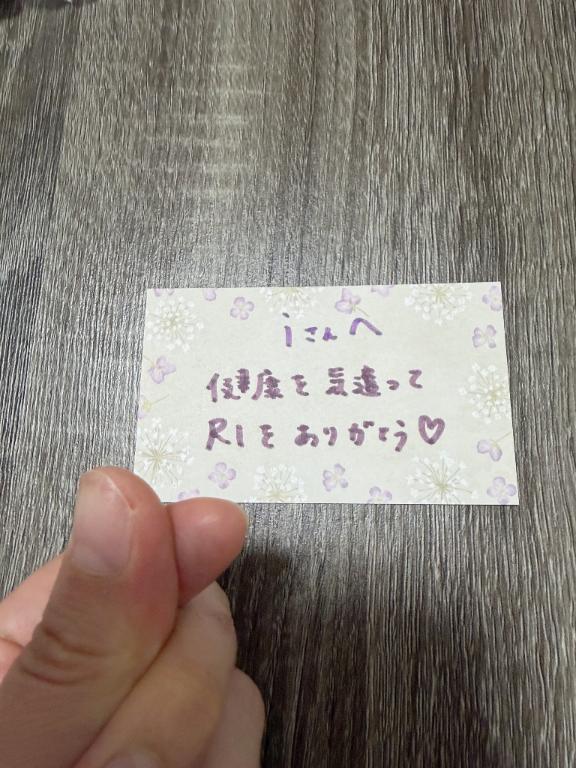 iさんへ
健康を気遣って
R1をありがとう♡